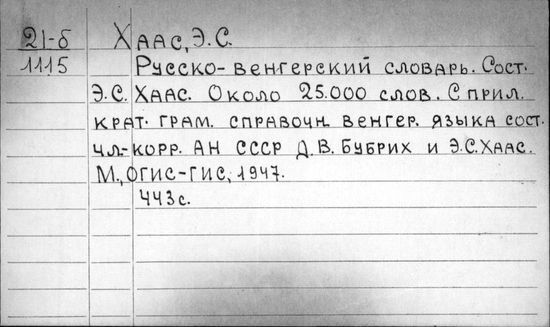 21-б Хаас, Э.С.
1115 Русско-венгерский словарь. Сост.
Э.С. Хаас. Около 25.000 слов. С прил.
крат. грам. справочн. венгер. языка сост.
чл.-корр. АН СССР Д.В. Бубрих и Э.С. Хаас.
М., ОГИС-ГИС, 1947.
443с.